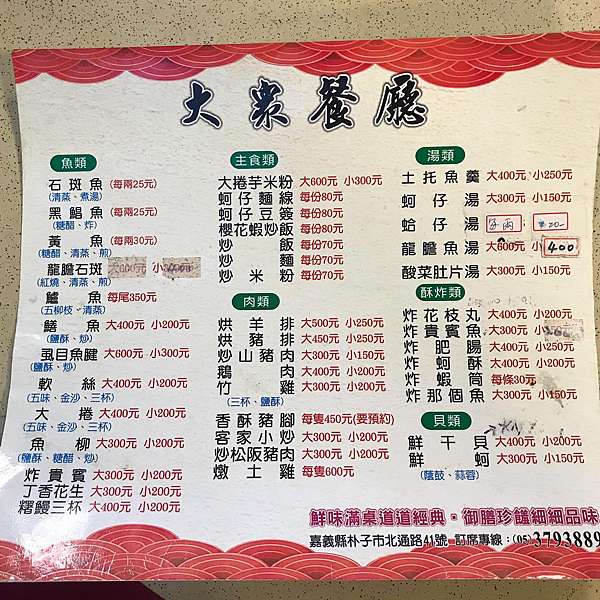 大衆餐廳
魚類
石斑魚(每兩25元)
(清蒸、煮湯)
黑鯧魚(每兩25元)
(糖醋、炸)
黃魚(每兩30元)
(糖醋、清蒸、煎)
龍膽石斑
(紅燒、清蒸、煎)
鱸魚 每尾350元
(五柳枝、清蒸)
鱔魚 大400元 小200元
(鹽酥、炒)
虱目魚腱 大600元 小300元
(鹽酥、炒)
軟絲 大400元 小200元
(五味、金沙、三杯)
大捲 大400元 小200元
(五味、金沙、三杯)
魚柳 大300元 小200元
(鹽酥、糖醋、炒)
炸貴賓 大300元 小200元
丁香花生 大300元 小200元
糯鰻三杯 大400元 小200元
主食類
大捲芋米粉 大600元 小300元
蚵仔麵線 每份80元
蚵仔豆簽 每份80元
櫻花蝦炒飯 每份80元
炒飯 每份70元
炒麵 每份70元
炒米粉 每份70元
肉類
烘羊排 大500元 小250元
烘豬排 大450元 小250元
炒山豬肉 大300元 小150元
鵝肉 大400元 小200元
竹雞 大400元 小200元
(三杯、鹽酥)
香酥豬腳 每隻450元(要預約)
客家小炒 大300元 小200元
炒松阪豬肉 大300元 小200元
燉土雞 每隻600元
湯類
土托魚羹 大400元 小250元
蚵仔湯 大300元 小150元
蛤仔湯
龍膽魚湯 大600元 小400
酸菜肚片湯 大300元 小150元
酥炸類
炸花枝丸 大400元 小200元
炸貴賓魚 大300元 小
炸肥腸 大400元 小250元
炸蚵酥 大400元 小200元
炸蝦筒 每條30元
炸那個魚 大300元 小150元
貝類
鮮干貝 大400元 小200元
鮮蚵 大300元 小150元
(蔭鼓、蒜蓉)
鮮味滿桌道道經典・御膳珍饈細細品味
嘉義縣朴子市北通路41號 訂席專線：(05)3793889